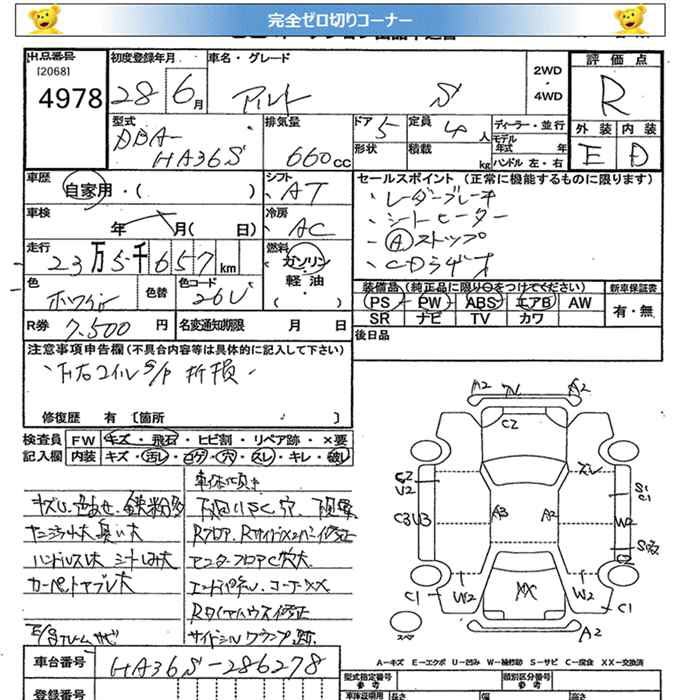 完全ゼロ切りコーナー
出品番号 初度登録年月 車名・グレード 評価点
[2068]
4978 28 6月 アルト S 2WD・4WD R
型式 排気量 ドア 5 定員 4人 ディーラー・並行 外装 内装
DBA- HA36S 660cc 形状 積載 kg モデル年式 年 ハンドル 左・右 E D
車歴 シフト セールスポイント (正常に機能するものに限ります)
自家用・( ) AT ・レーダーブレーキ
車検 冷房 ・シートヒーター
年 月( 日) AC ・Aストップ
走行 燃料 ・CDラジオ
23万5千657km ガソリン・軽油
色 色替 色コード 装備品(純正品に限り○をつけてください) 新車保証書
ホワイト 26U ( ) PS PW ABS エアB AW 有・無
SR ナビ TV カワ
R券 7,500円 名変通知期限 月 日 後日品
注意事項申告欄(不具合内容等は具体的に記入して下さい)
下右コイルS/P 折損
修復歴 有 [箇所 ]
検査員 FW キズ・飛石・ヒビ割・リペア跡・×要
記入欄 内装 キズ・汚レ・コゲ・穴・スレ・キレ・破レ
車体傾き
キズU、色あせ、鉄粉多
ヤニ汚れ大 臭い大 Rフロア、Rサイドメンバー修正
ハンドルスレ大 シートしみ大 アンダーフロアC穴大
カーペットヤブレ大 エンドパネル、コーナーXX
Rタイヤハウス修正
サイドシルクランプ跡
A2 A2
C2
C2 U2 S1 C1
C3U3 A3 A2 W2
C2
C1 W2 XX W2 C1
スペア A2
A-キズ E-エクボ U-凹み W-補修跡 S-サビ C-腐食 XX-交換済
車台番号 HA36S-286278
登録番号
型式指定番号 参考 類別区分番号 参考
長さ 幅 高さ